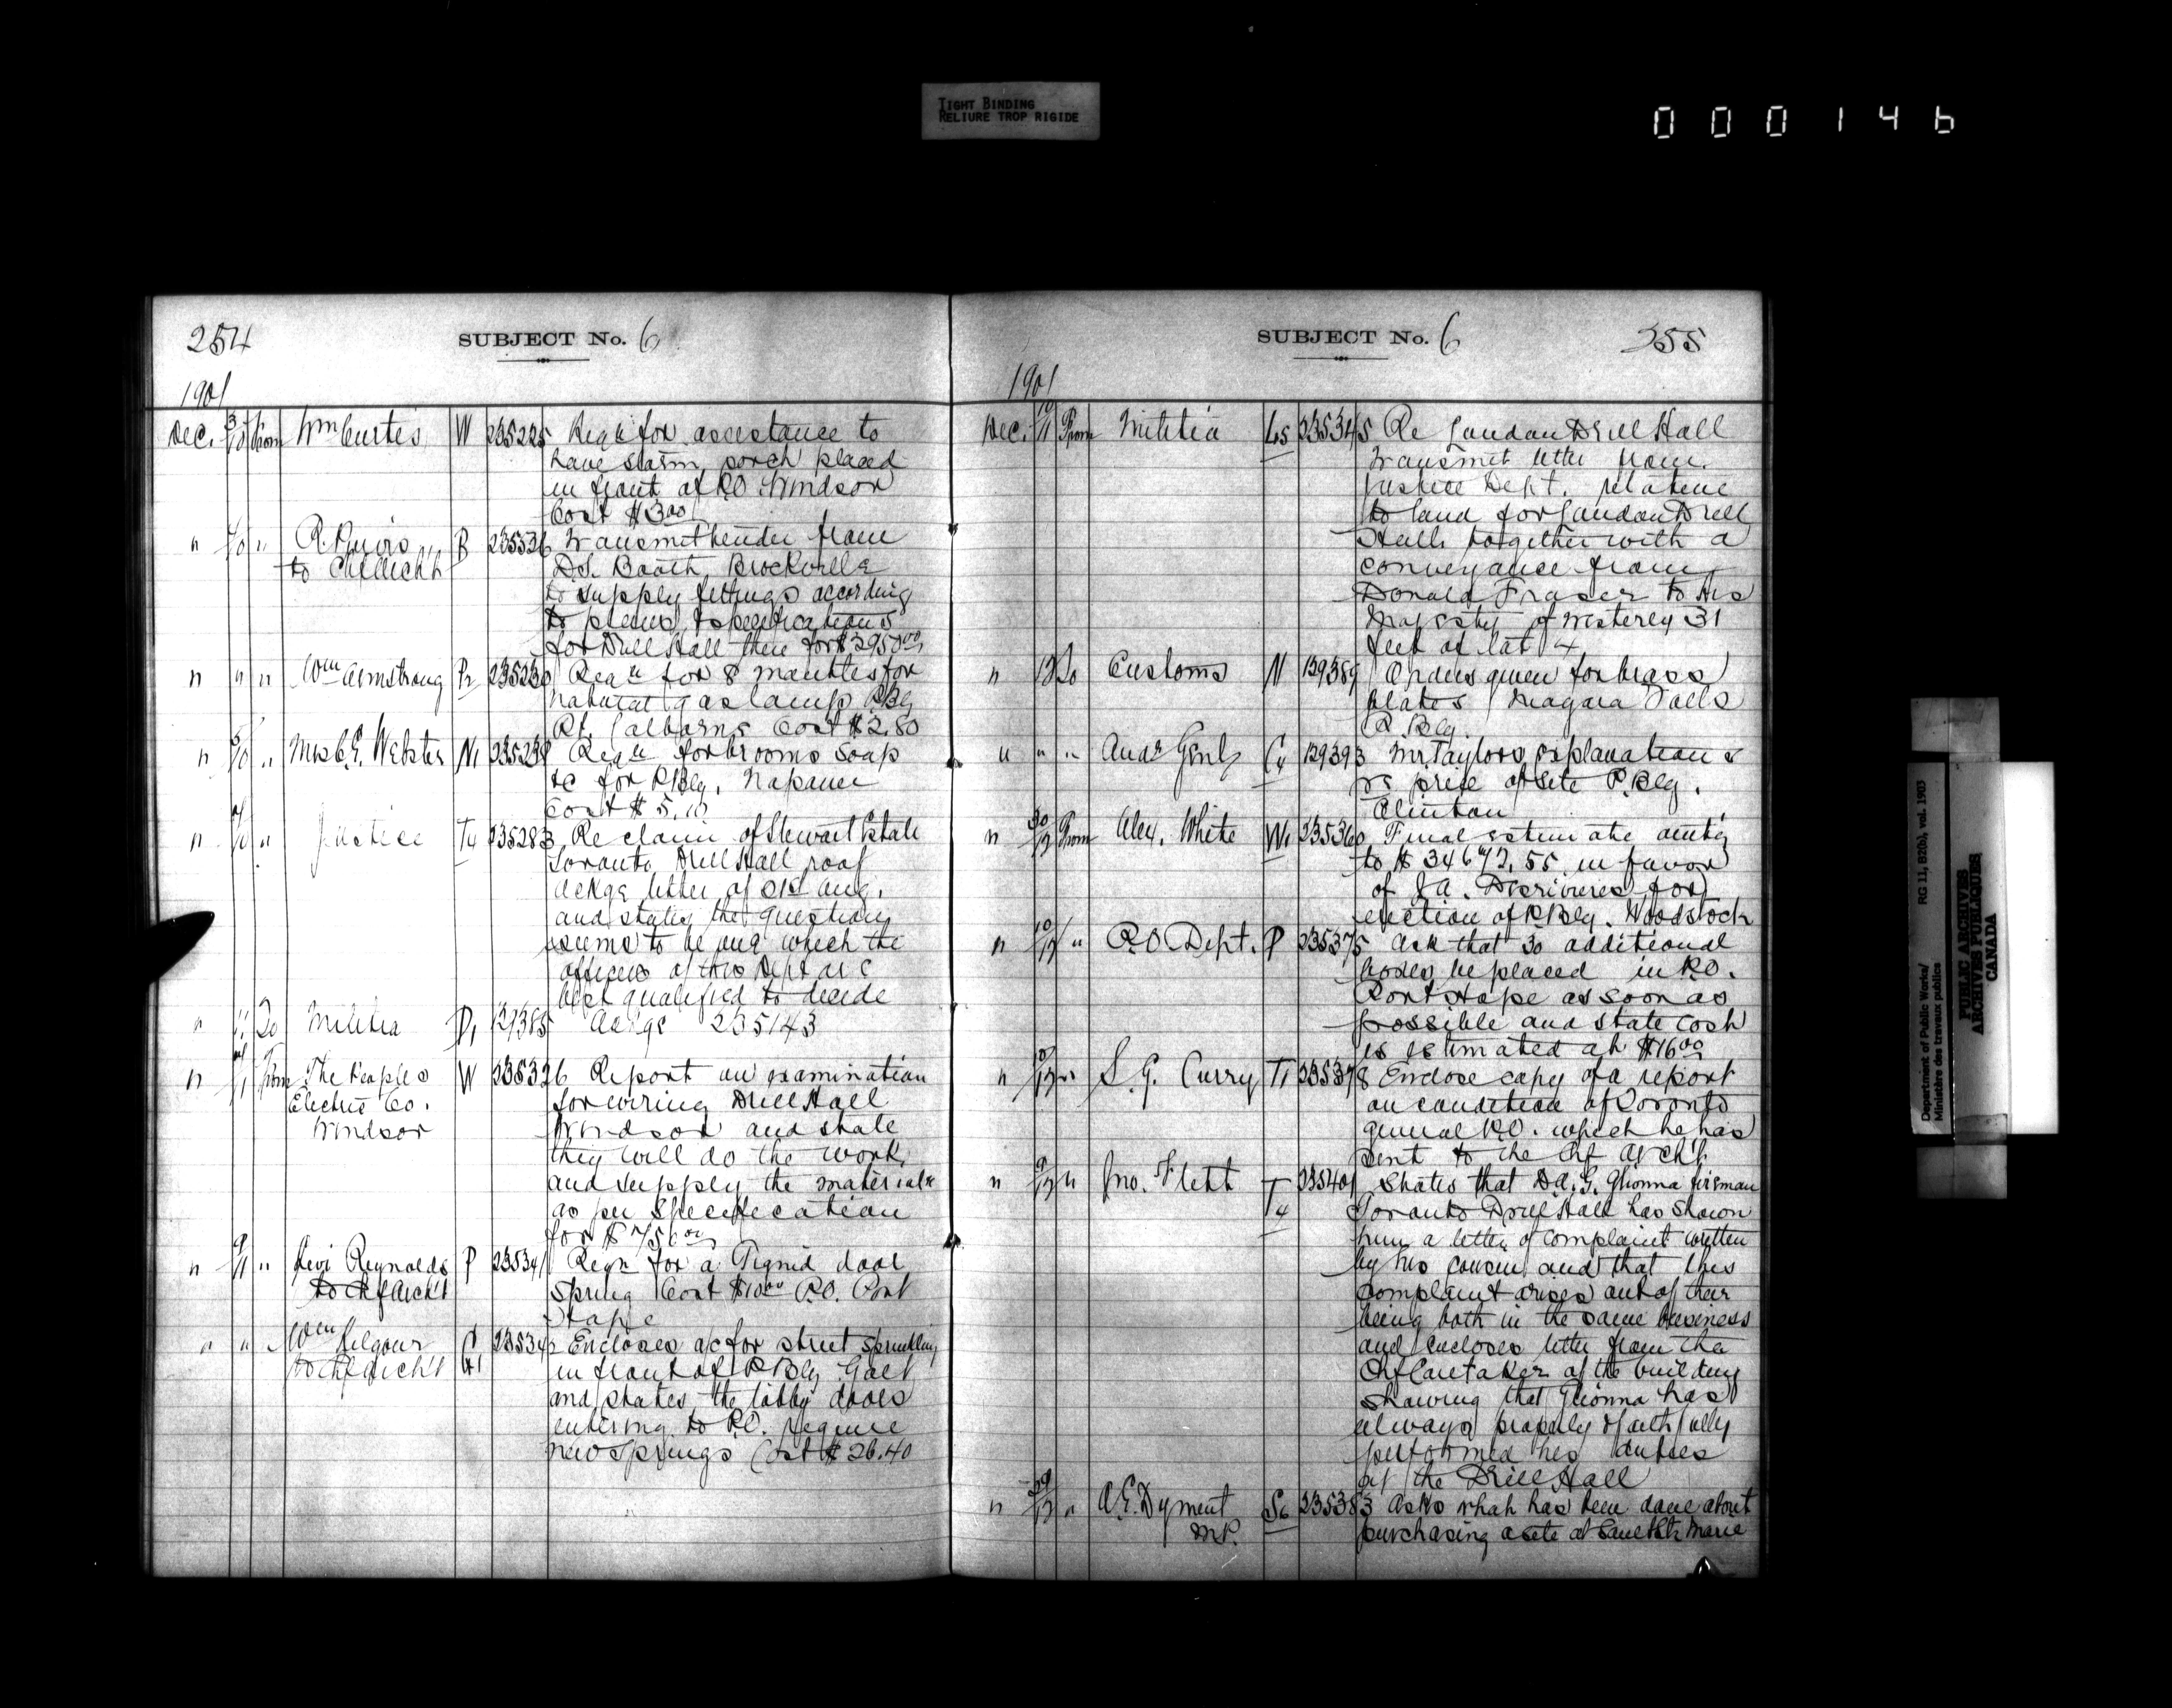 TIGHT BINDING
RELIURE TROP RIGIDE
000146
254
SUBJECT No. 6
1901
Dec. 3/10 From Wm Curtis W 235225 Reqn for assistance to
have storm porch placed
in front of P.O. Windsor
Cost $3.00
" " 235236 Transmit tender from
D.S. Booth Brockville
to supply fittings according
to plans & specifications
for Drill Hall there for $3950.00
" " " Wm Armstrong 235230 Reqn for 8 mantles for
natural gas lamp P.Blg
Pt. Colborne Cost $2.80
" 5/10 " Mrs C.E. Webster N1 235238 Reqn for brooms soap
&c for P.Blg. Napanee
Cost $5.10
" " Justice T4 235283 Re claim of Stewart Estate
Toronto Drill Hall roof
ackge letter of 21st Aug.
and states the question
seems to be one which the
officers of this Dept are
best qualified to decide
" 11 To Militia 129385 Ackge 235143
" From The Peoples W 235326 Report on examination
Electric Co. for wiring Drill Hall
Windsor Windsor and state
they will do the work
and supply the materials
as per Specification
for $756.00
" 9/11 " Levi Reynolds P 235341 Reqn for a door
to Chf Arch't spring Cost $10.00 P.O. Port
Hope
" " " Wm Kilgour G1 235342 Encloses a/c for street sprinkling
to Chf Arch't in front of P.Blg Galt
and states the lobby doors
entering to P.O. require
new springs Cost $26.40
SUBJECT No. 6
355
1901
Dec. 10/11 From Militia L5 235345 Re London Drill Hall
Transmit letter from
Justice Dept. relative
to land for London Drill
Hall together with a
conveyance from
Donald Fraser to His
Majesty of westerly 31
feet of lot 4
" 12 To Customs N 129389 Orders given for brass
plates Niagara Falls
P.Blg.
" " " Audr Genl C4 129393 Mr. Taylors explanation
re price of site P.Blg.
Clinton
" 30/12 From Alex. White W1 235360 Final estimate amtg
to $34672.55 in favor
of J.A. for
erection of P.Blg. Woodstock
" 10/12 " P.O. Dept. P 235375 Ask that 30 additional
boxes be placed in P.O.
Port Hope as soon as
possible and state cost
is estimated at $16.00
" 10/12 " S.G. Curry T1 235378 Enclose copy of a report
on condition of Toronto
general P.O. which he has
sent to the Chf Arch't.
" 9/12 " Jno. Flett T4 235401 States that D.A.G. Glionna fireman
Toronto Drill Hall has shown
him a letter of complaint written
by his cousin and that this
complaint arises out of their
being both in the same business
and encloses letter from the
Chf Caretaker of the building
showing that Glionna has
always properly & faithfully
performed his duties
at the Drill Hall
" 29/12 " A.E. Dyment S6 235383 Asks what has been done about
M.P. purchasing a site at Sault Ste Marie
Department of Public Works/ RG 11, B2(b), vol. 1903
Ministère des travaux publics
PUBLIC ARCHIVES
ARCHIVES PUBLIQUES
CANADA